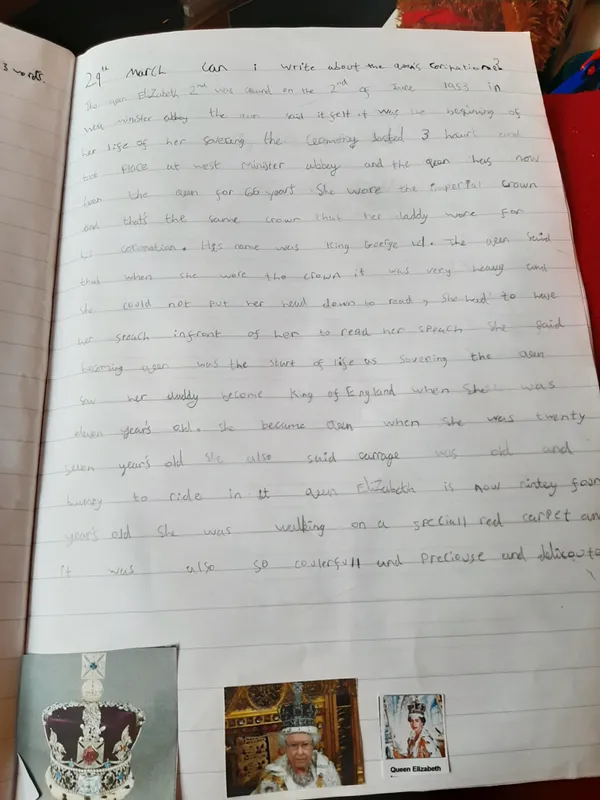 3 words.
29th March Can i write about the qeen's coronation?
The qeen Elizabeth 2nd was crowned on the 2nd of June 1953 in
west minister abbey the qeen said it felt it was the beginning of
her life of her sovering the ceromony lasted 3 hours and
took place at west minister abbey and the qeen has now
been the qeen for 66 years She wore the imperial crown
and that's the same crown that her daddy wore for
his coronation. His name was King George VI. The qeen said
that when she wore the crown it was very heavy and
she could not put her head down to read, She had to have
her speach infront of her to read her speach She said
becoming qeen was the start of life as sovering the qeen
saw her daddy become King of England when She was
eleven year's old. She became qeen when she was twenty
seven year's old She also said carrage was old and
bumpy to ride in it qeen Elizabeth is now ninty four
year's old She was walking on a speciall red carpet an
it was also so coulerfull and preciouse and delicate
Queen Elizabeth